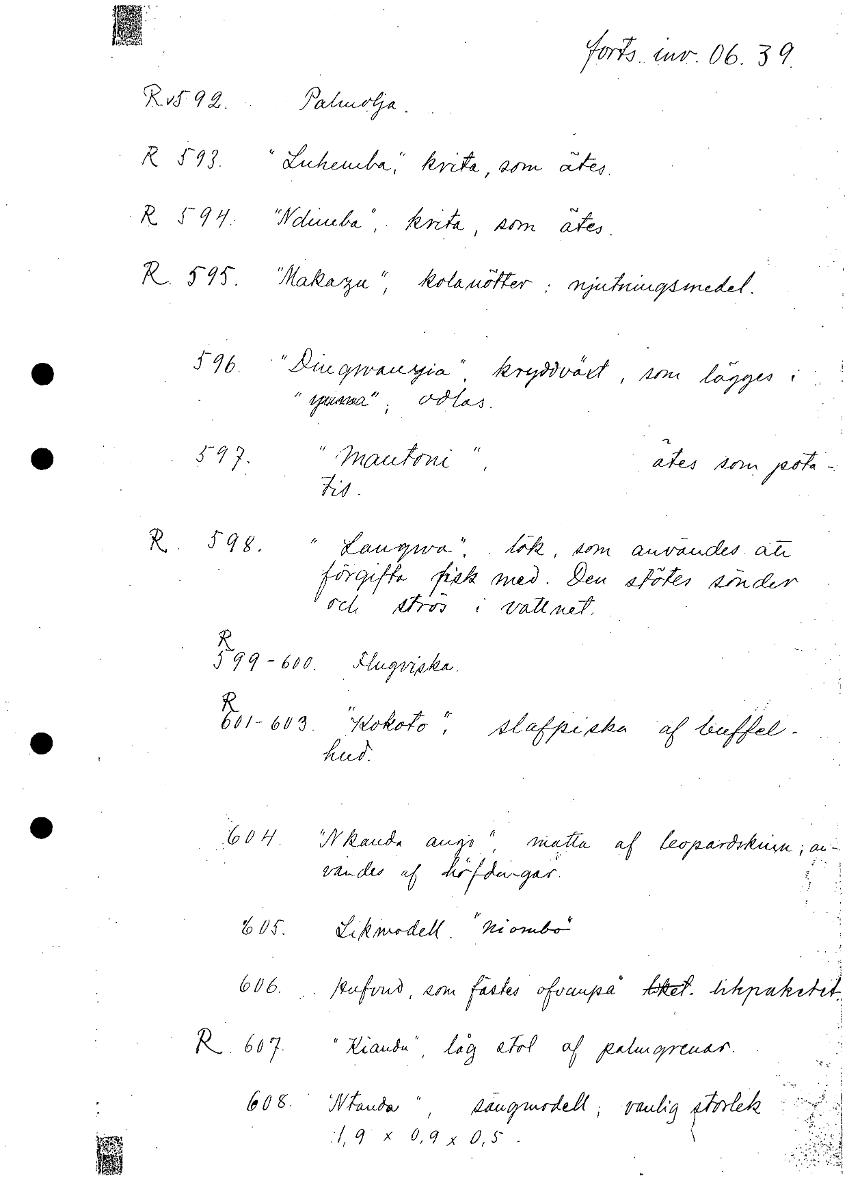 forts. inv. 06. 39.
R 592. Palmolja.
R 593. "Luhemba", krita, som ätes.
R 594. "Ndimba", krita, som ätes.
R. 595. "Makazu", kolanötter; njutningsmedel.
596. kryddväxt, som lägges i
odlas.
597. "Mantoni", ätes som pota-
tis.
R. 598. "Langwa", lök, som användes att
förgifta fisk med. Den stötes sönder
och strös i vattnet.
R
599-600. Flugviska.
R
601-603. "Kokoto", slafpiska af buffel-
hud.
604. "Nkanda angò", matta af leopardskinn; an-
vändes af höfdingar.
605. Likmodell. "niombo"
606. Hufvud, som fästes ofvanpå likpaketet.
R 607. "Kiandu", låg stol af palmgrenar.
608. "Ntanda", sängmodell; vanlig storlek
1,9 x 0,9 x 0,5.